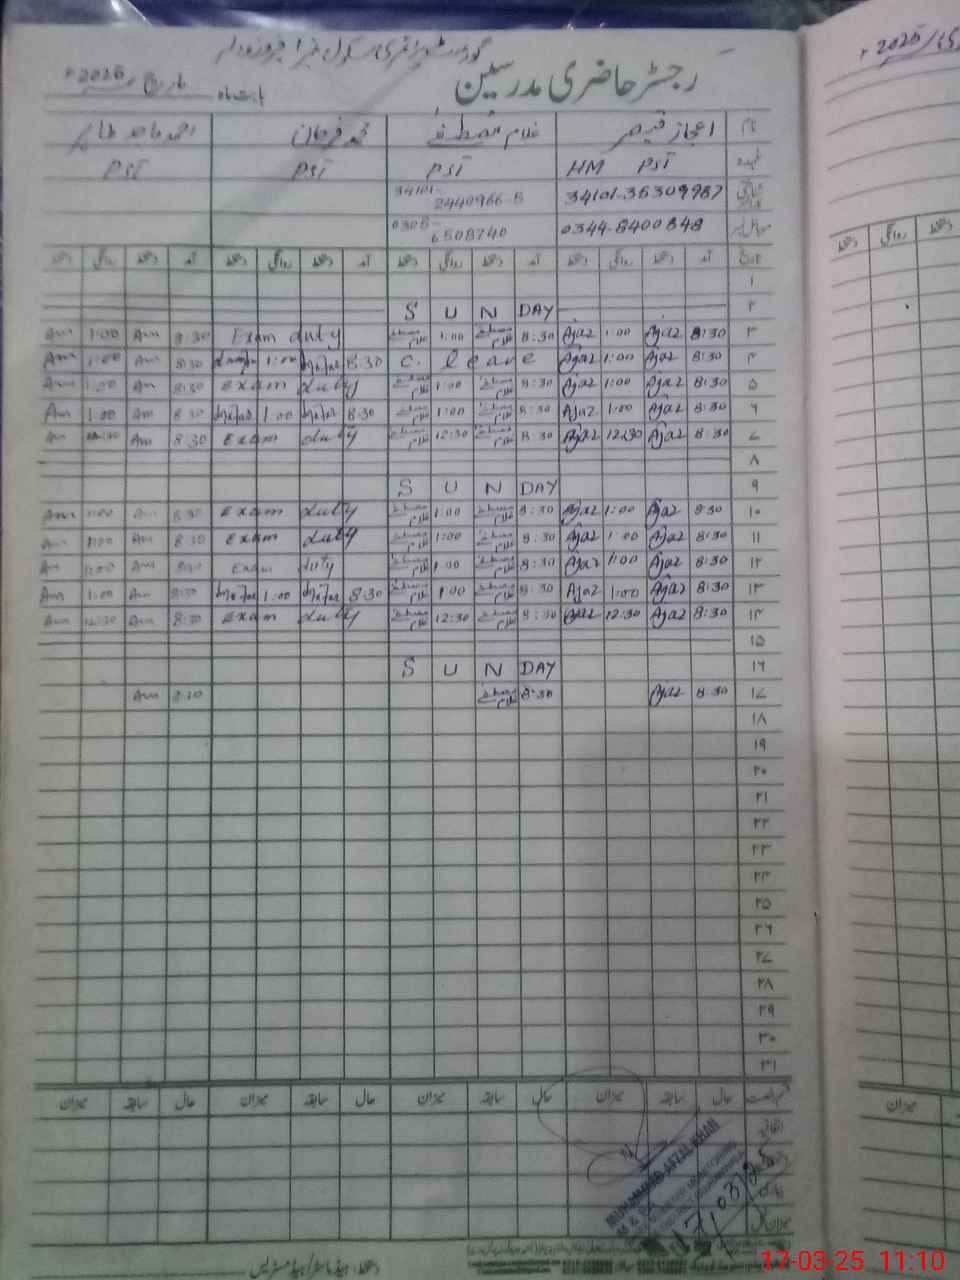 گورنمنٹ پرائمری سکول نمبر ۱ فیروزوالہ
رجسٹر حاضری مدرسین بابت ماہ مارچ 2025ء
نام اعجاز قیصر غلام مصطفےٰ محمد فرحان احمد ماجد طاہر
عہدہ HM PST PST PST PST
34101-35309987 34101-2440966-5
موبائل نمبر 0344-8400848 0305-6508740
تاریخ آمد دستخط روانگی دستخط آمد دستخط روانگی دستخط آمد دستخط روانگی دستخط آمد دستخط روانگی دستخط
۱
۲ SUNDAY
۳ 8:30 Ajaz 1:00 Ajaz 8:30 غلام مصطفےٰ 1:00 غلام مصطفےٰ Exam duty 8:30 Am 1:00 Am
۴ 8:30 Ajaz 1:00 Ajaz C. leave 8:30 1:00 8:30 Am 1:00 Am
۵ 8:30 Ajaz 1:00 Ajaz 8:30 غلام مصطفےٰ 1:00 غلام مصطفےٰ Exam duty 8:30 Am 1:00 Am
۶ 8:30 Ajaz 1:00 Ajaz 8:30 غلام مصطفےٰ 1:00 غلام مصطفےٰ 8:30 1:00 8:30 Am 1:00 Am
۷ 8:30 Ajaz 12:30 Ajaz 8:30 غلام مصطفےٰ 12:30 غلام مصطفےٰ Exam duty 8:30 Am Am
۸
۹ SUNDAY
۱۰ 8:30 Ajaz 1:00 Ajaz 8:30 غلام مصطفےٰ 1:00 غلام مصطفےٰ Exam duty 8:30 Am 1:00 Am
۱۱ 8:30 Ajaz 1:00 Ajaz 8:30 غلام مصطفےٰ 1:00 غلام مصطفےٰ Exam duty 8:30 Am 1:00 Am
۱۲ 8:30 Ajaz 1:00 Ajaz 8:30 غلام مصطفےٰ 1:00 غلام مصطفےٰ Exam duty 8:30 Am 1:00 Am
۱۳ 8:30 Ajaz 1:00 Ajaz 8:30 غلام مصطفےٰ 1:00 غلام مصطفےٰ 8:30 1:00 8:30 Am 1:00 Am
۱۴ 8:30 Ajaz 12:30 Ajaz 8:30 غلام مصطفےٰ 12:30 غلام مصطفےٰ Exam duty 8:30 Am 12:30 Am
۱۵
۱۶ SUNDAY
۱۷ 8:30 Ajaz 8:30 غلام مصطفےٰ 8:30 Am
۱۸
۱۹
۲۰
۲۱
۲۲
۲۳
۲۴
۲۵
۲۶
۲۷
۲۸
۲۹
۳۰
۳۱
حال سابقہ میزان حال سابقہ میزان حال سابقہ میزان حال سابقہ میزان
اتفاقیہ
میزان کل
MUHAMMAD AFZAL KHAN
17/03/25
دستخط ہیڈ ماسٹر/ہیڈ مسٹریس
2025ء
دستخط روانگی دستخط
میزان
17-03-25 11:10